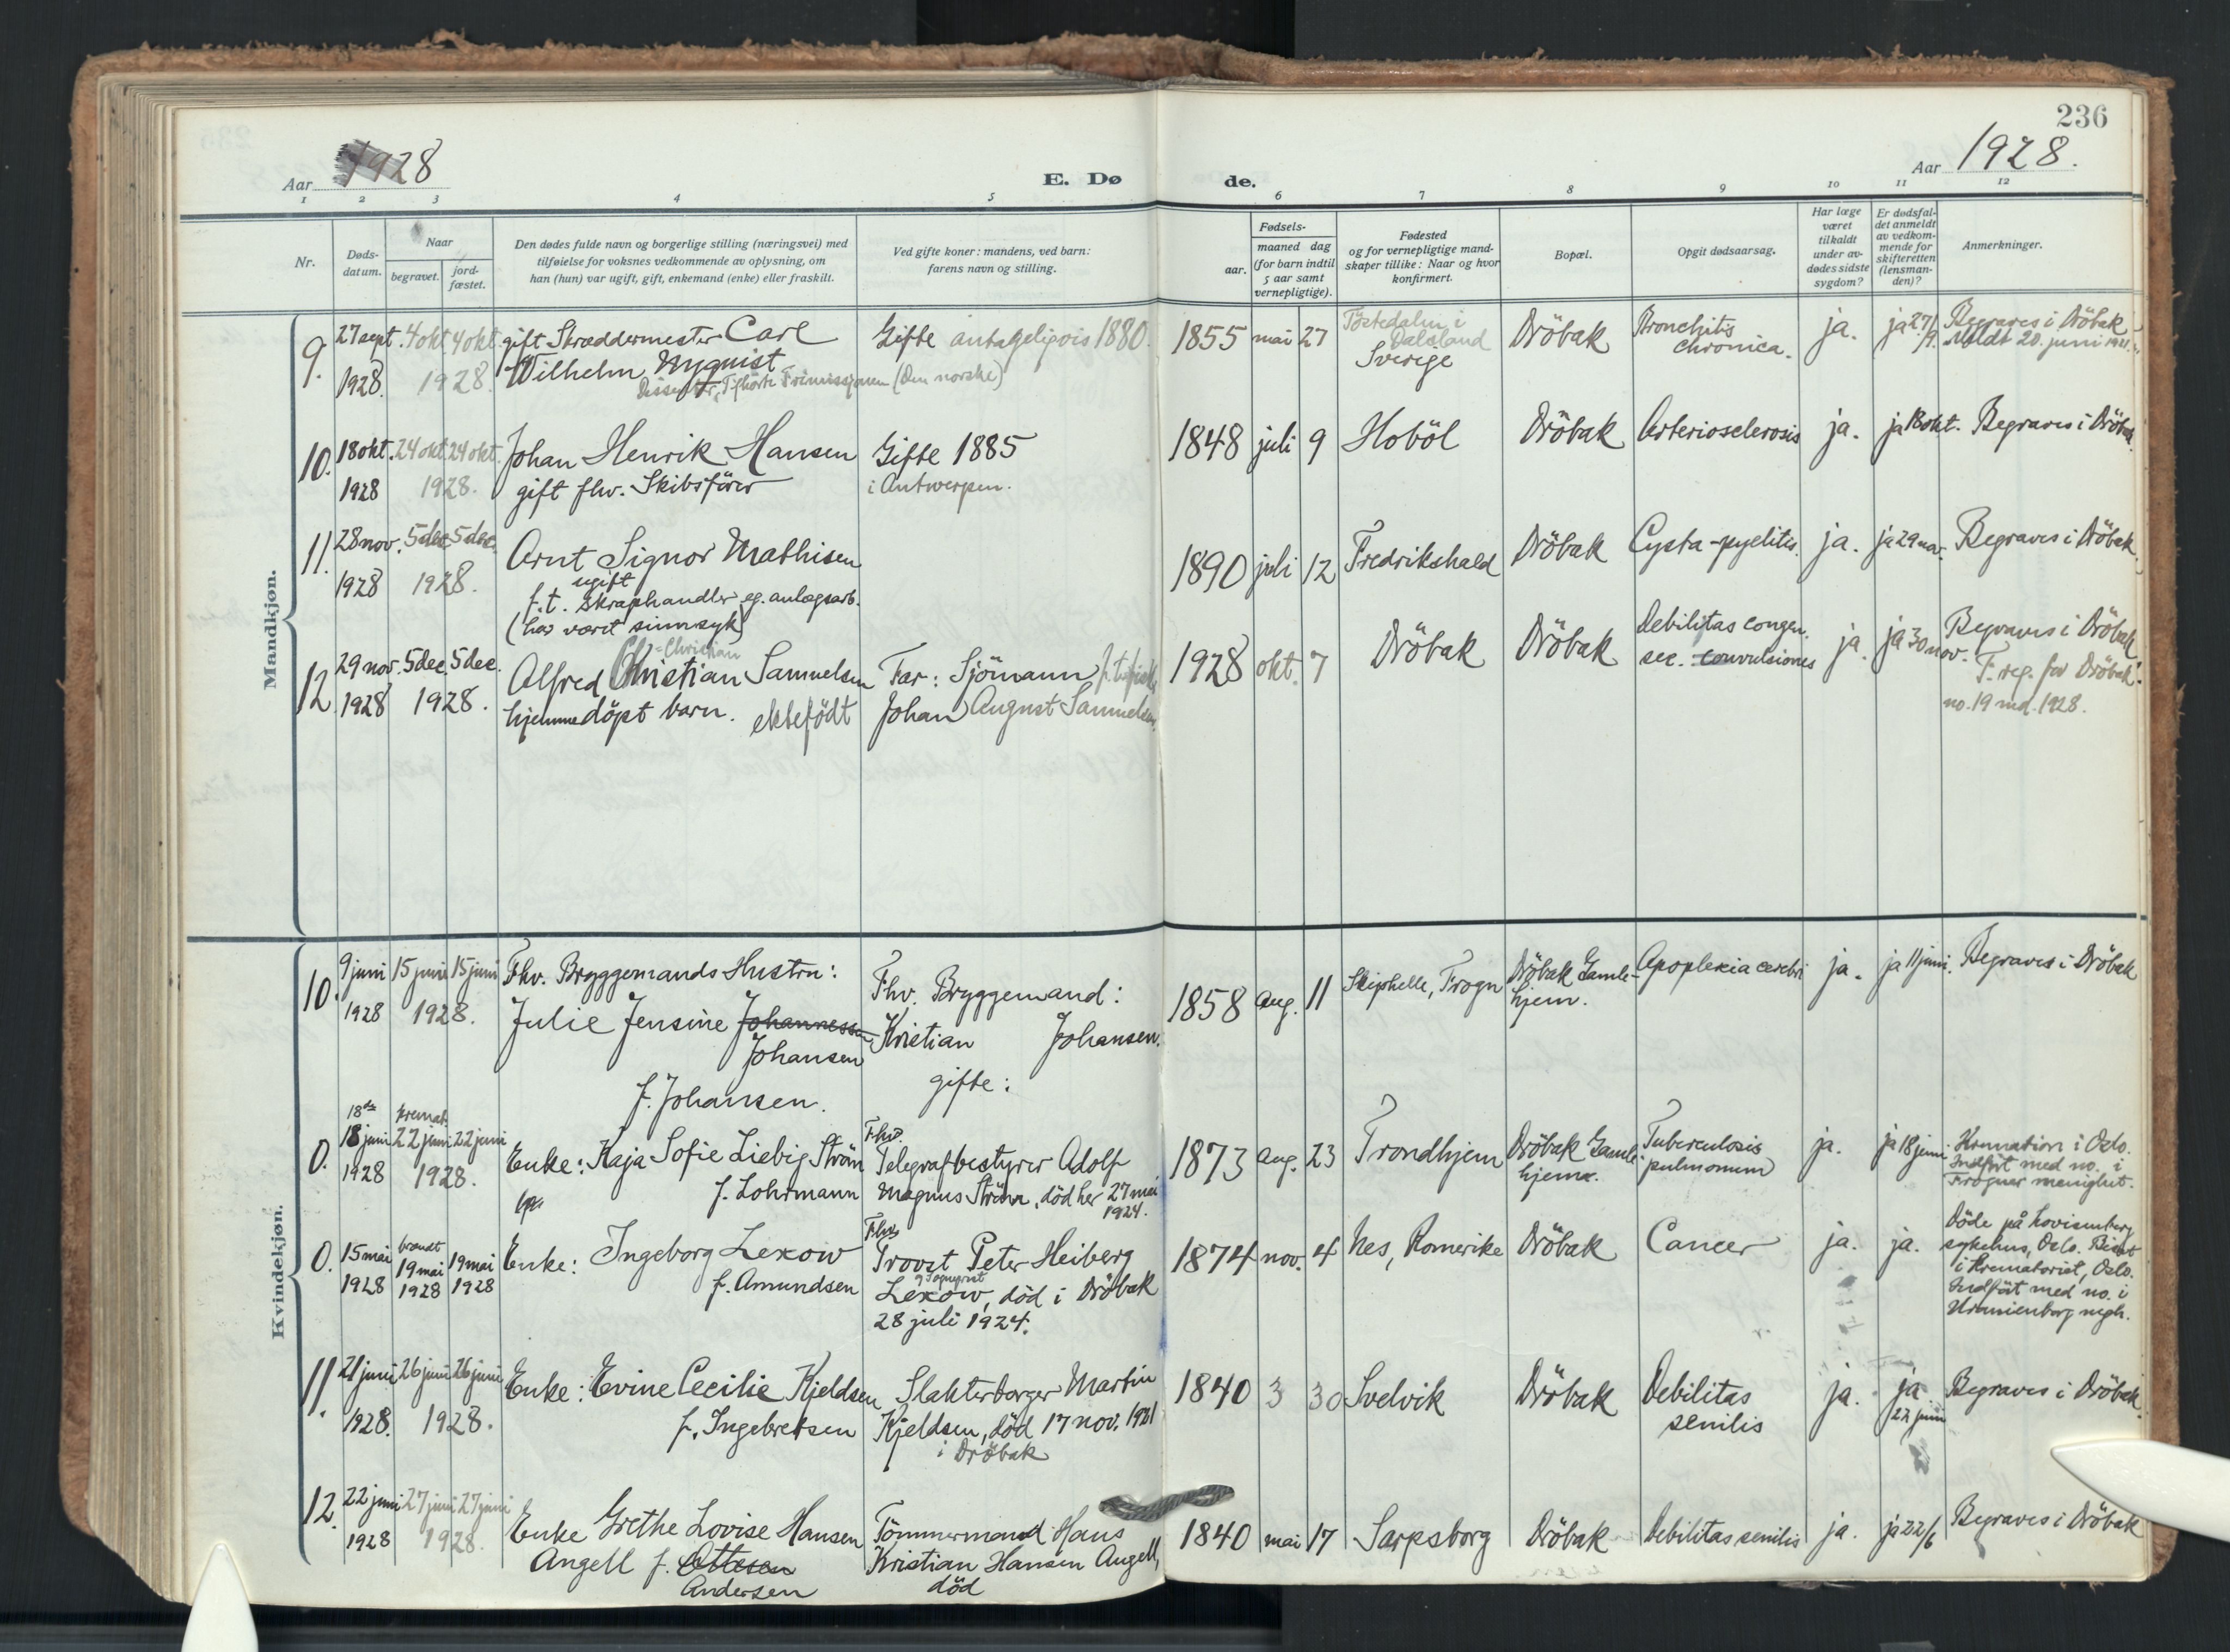 236
Aar 1928
E. Dø de.
Aar 1928.
1 2 3 4 5 6 7 8 9 10 11 12
Nr.
Døds-
datum.
Naar
begravet.
jord-
fæstet.
Den dødes fulde navn og borgerlige stilling (næringsvei) med
tilføielse for voksnes vedkommende av oplysning, om
han (hun) var ugift, gift, enkemand (enke) eller fraskilt.
Ved gifte koner: mandens, ved barn:
farens navn og stilling.
Fødsels-
aar.
maaned dag
(for barn indtil
5 aar samt
vernepligtige).
Fødested
og for vernepligtige mand-
skaper tillike: Naar og hvor
konfirmert.
Bopæl.
Opgit dødsaarsag.
Har læge
været
tilkaldt
under av-
dødes sidste
sygdom?
Er dødsfal-
det anmeldt
av vedkom-
mende for
skifteretten
(lensman-
den)?
Anmerkninger.
Mandkjøn.
9. 27 sept. 4 okt 4 okt. gift Skræddermester Carl
1928. 1928. Wilhelm Nyquist
Dissenter, Tilhörte Frimissjonen (Den norske)
Gifte antageligvis 1880.
1855 mai 27
Dalsland
Sverige
Dröbak
Bronchitis
chronica.
ja. ja 27/9.
Begraves i Dröbak
Meldt 20. juni
10. 18 okt. 24 okt 24 okt. Johan Henrik Hansen
1928 1928. gift fhv. Skibsförer
Gifte 1885
i Antwerpen.
1848 juli 9 Hoböl Dröbak Arteriosclerosis ja. ja 18 okt. Begraves i Dröbak.
11. 28 nov. 5 dec 5 dec. Arnt Signor Mathisen
1928 1928. ugift
f.t. skraphandler eg. anlægsarb.
(har vært sinnsyk)
1890 juli 12 Fredrikshald Dröbak Cysta-pyelitis. ja. ja 29 nov. Begraves i Dröbak.
12 29 nov. 5 dec. 5 dec. Alfred Christian Samuelsen
=Christian
1928 1928. hjemmedöpt barn. ektefödt
Far: Sjömann
Johan August Samuelsen.
1928 okt. 7 Dröbak Dröbak
Debilitas congen.
sec. convulsiones
ja. ja 30 nov.
Begraves i Dröbak.
F. reg. for Dröbak
no. 19 md. 1928.
Kvindekjøn.
10. 9 juni 15 juni 15 juni Fhv. Bryggemands Hustru:
1928 1928. Julie Jensine Johannessen
Johansen
f. Johansen.
Fhv. Bryggemand:
Kristian Johansen.
gifte:
1858 aug. 11 Skiphelle, Frogn
Dröbak Gamle-
hjem.
Apoplexia cerebri ja. ja 11 juni. Begraves i Dröbak
18de kremat.
0. 18 juni 22 juni 22 juni Enke: Kaja Sofie Liebig Ström
1928 1928. f. Lohrmann
Fhv.
Telegrafbestyrer Adolf
Magnus Ström, död her 27 mai
1924.
1873 aug. 23 Trondhjem
Dröbak Gamle
hjem.
Tuberculosis
pulmonum
ja. ja 18 juni.
Kremation i Oslo.
Indfört med no. i
Frogner menighet.
0. 15 mai brændt 19 mai 19 mai Enke: Ingeborg Lexow
1928 1928 1928 f. Amundsen
Fhv.
Provst Peter Heiberg
Lexow, död i Dröbak
28 juli 1924.
1874 nov. 4 Nes, Romerike Dröbak Cancer ja. ja.
Döde på Lovisenberg
sykehus, Oslo. Bisat
i krematoriet, Oslo.
Indfört med no. i
Uranienborg megh.
11. 21 juni 26 juni 26 juni Enke: Evine Cecilie Kjeldsen
1928. 1928. f. Ingebretsen
Slakterborger Martin
Kjeldsen, död 17 nov. 1921
i Dröbak
1840 3 30 Svelvik Dröbak
Debilitas
senilis
ja. ja
22 juni
Begraves i Dröbak.
12. 22 juni 27 juni 27 juni Enke Grethe Lovise Hansen
1928 1928. Angell f. Ottesen
Andersen
Tömmermand Hans
Kristian Hansen Angell,
död
1840 mai 17 Sarpsborg Dröbak Debilitas senilis ja. ja 22/6 Begraves i Dröbak